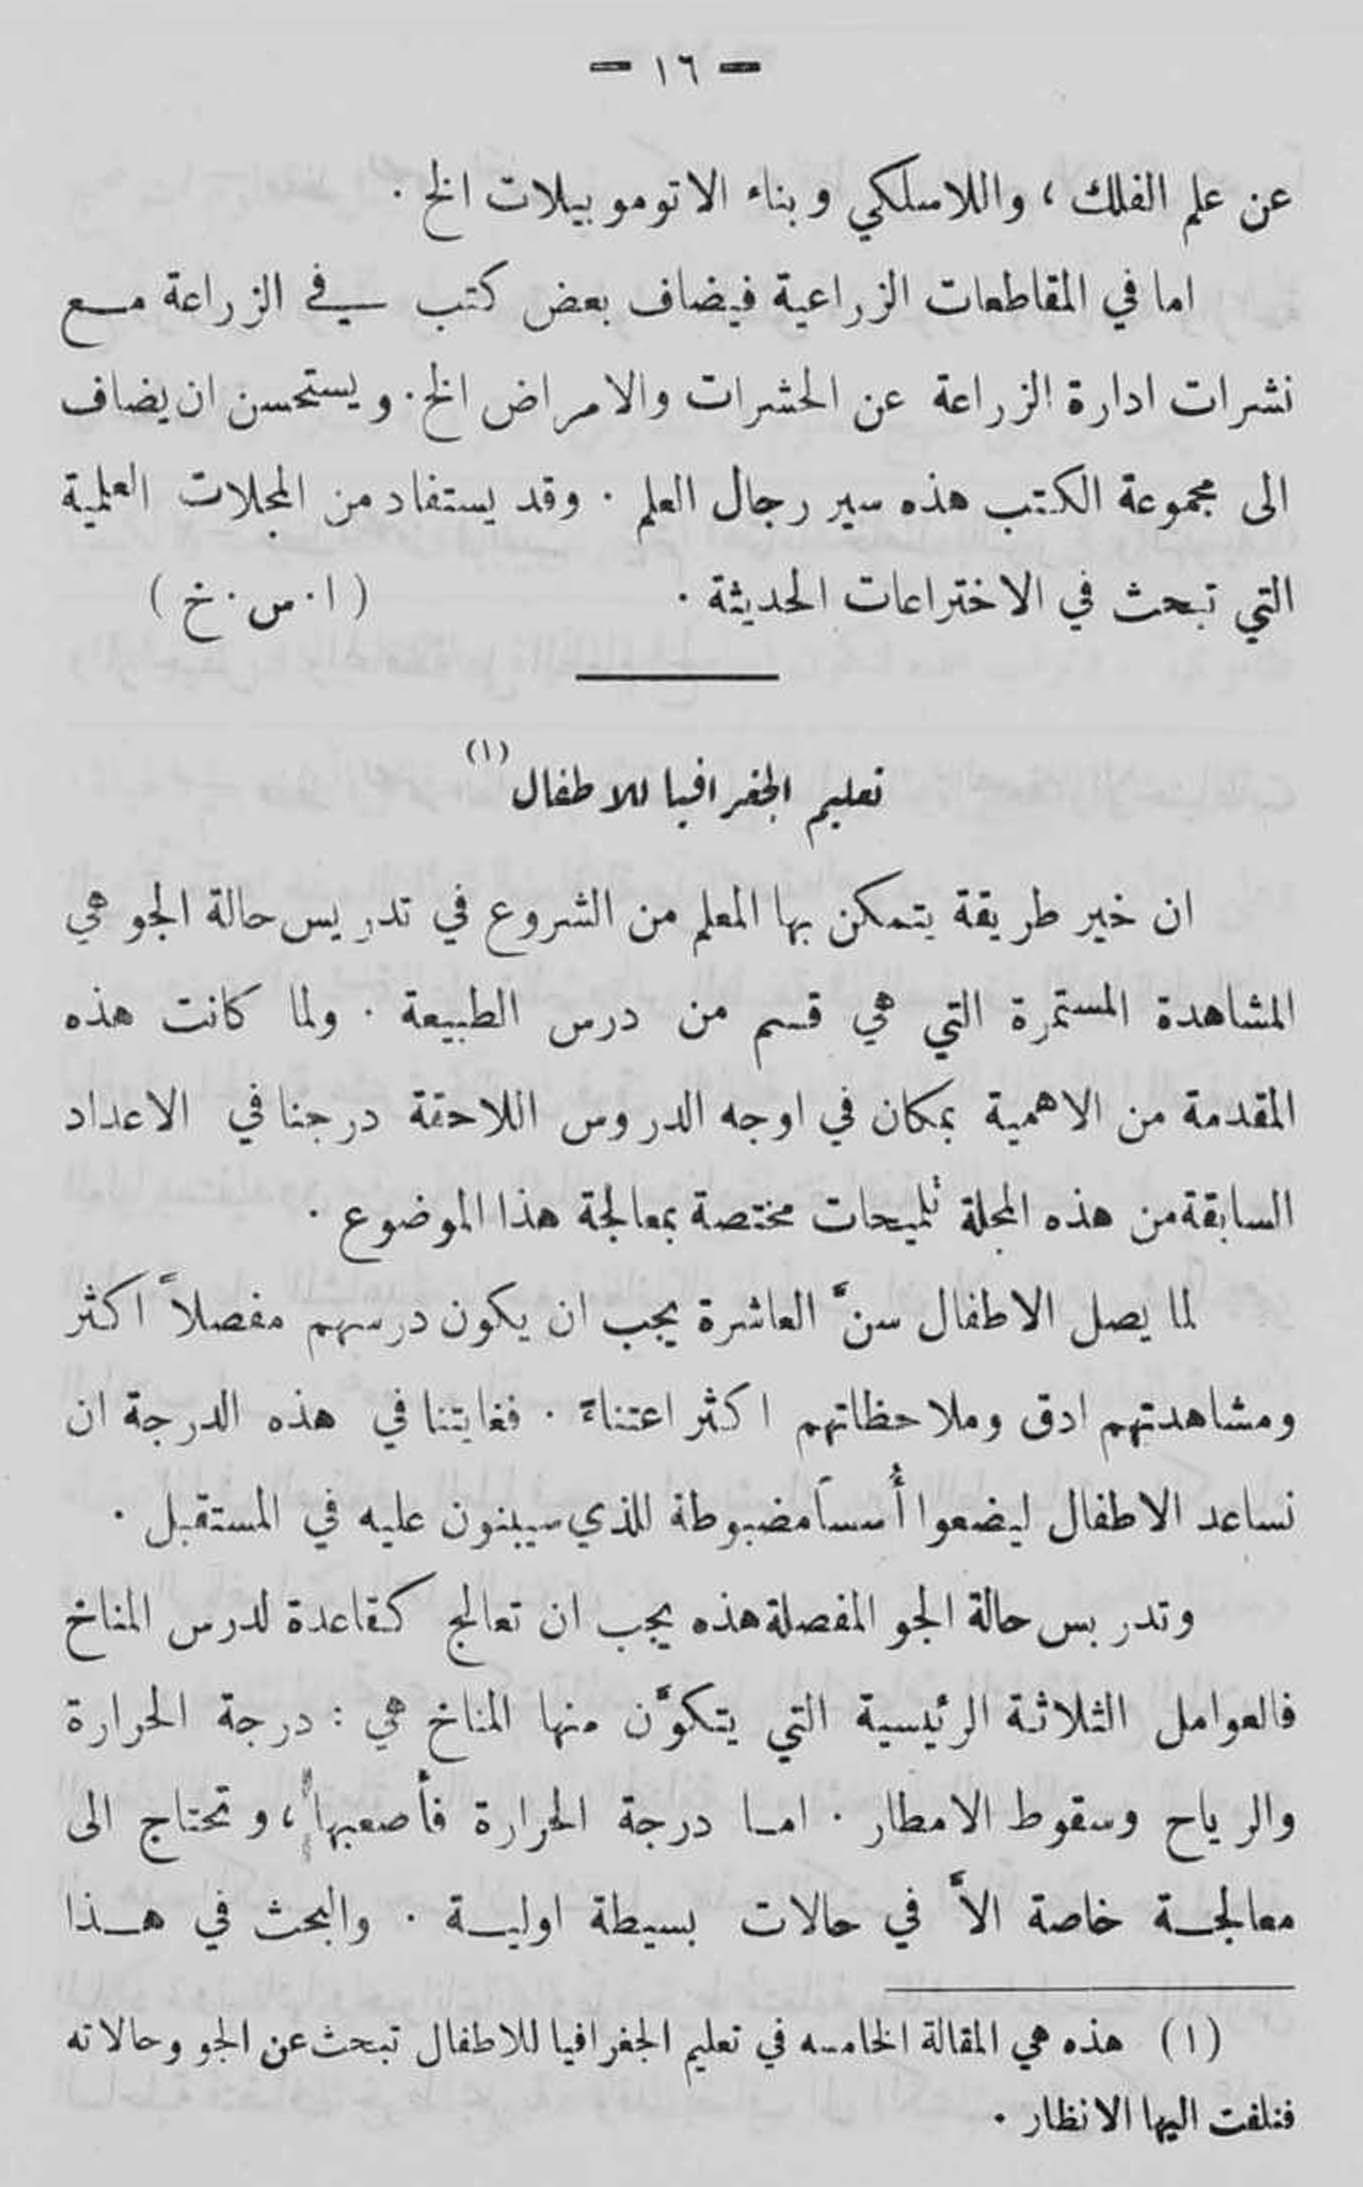 — ١٦ —
عن علم الفلك ، واللاسلكي وبناء الاتوموبيلات الخ .
اما في المقاطعات الزراعية فيضاف بعض كتب في الزراعة مع
نشرات ادارة الزراعة عن الحشرات والامراض الخ . ويستحسن ان يضاف
الى مجموعة الكتب هذه سير رجال العلم . وقد يستفاد من المجلات العلمية
التي تبحث في الاختراعات الحديثة . ( ا . س . خ )
تعليم الجغرافيا للاطفال (١)
ان خير طريقة يتمكن بها المعلم من الشروع في تدريس حالة الجو هي
المشاهدة المستمرة التي هي قسم من درس الطبيعة . ولما كانت هذه
المقدمة من الاهمية بمكان في اوجه الدروس اللاحقة درجنا في الاعداد
السابقة من هذه المجلة تلميحات مختصة بمعالجة هذا الموضوع .
لما يصل الاطفال سنَّ العاشرة يجب ان يكون درسهم مفصلاً اكثر
ومشاهدتهم ادق وملاحظاتهم اكثر اعتناءً . فغايتنا في هذه الدرجة ان
نساعد الاطفال ليضعوا أُسساً مضبوطة للذي سيبنون عليه في المستقبل .
وتدريس حالة الجو المفصلة هذه يجب ان تعالج كقاعدة لدرس المناخ
فالعوامل الثلاثة الرئيسية التي يتكوَّن منها المناخ هي : درجة الحرارة
والرياح وسقوط الامطار . اما درجة الحرارة فأصعبها ، وتحتاج الى
معالجة خاصة الاَّ في حالات بسيطة اولية . والبحث في هذا
(١) هذه هي المقالة الخامسه في تعليم الجغرافيا للاطفال تبحث عن الجو وحالاته
فنلفت اليها الانظار .